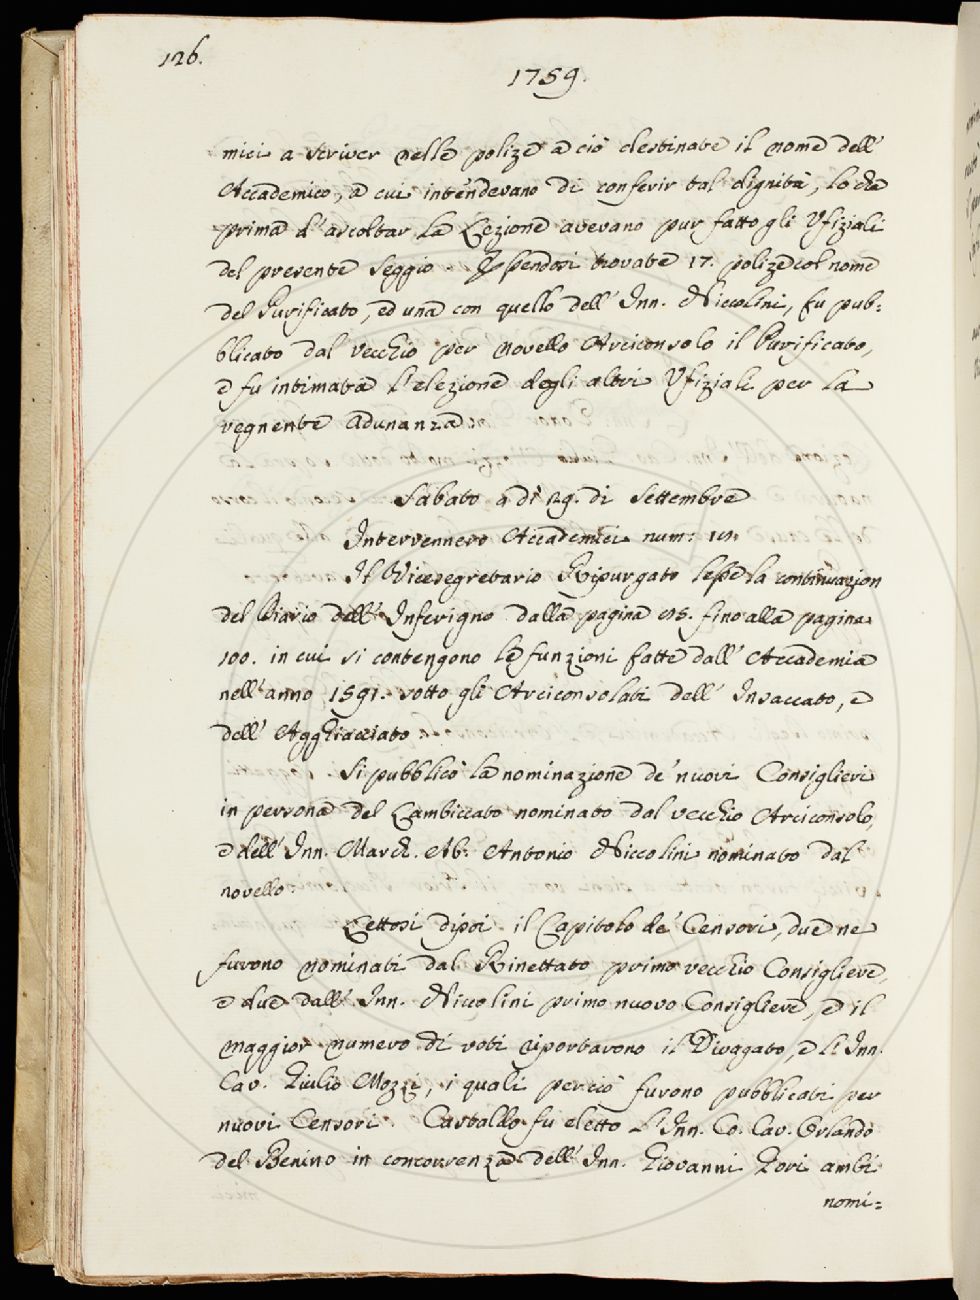 126.
1759.
mici a scriver nelle polize a ciò destinate il nome dell'
Accademico, a cui intendevano di conferir tal dignità, lo che
prima d'ascoltar la Lezione avevano pur fatto gli Ufiziali
del presente Seggio. Essendosi trovate 17. polize col nome
del Purificato, ed una con quello dell' Inn. Niccolini, fu pub=
blicato dal vecchio per novello Arciconsolo il Purificato,
e fu intimata l'elezione degli altri Ufiziali per la
vegnente adunanza.
Sabato a dì 29. di Settembre
Intervennero Accademici num:
Il Vicesegretario Ripurgato lesse la continuazion
del Diario dell' Inferigno dalla pagina fino alla pagina
100. in cui si contengono le funzioni fatte dall' Accademia
nell' anno 1591. sotto gli Arciconsolati dell' Insaccato, e
dell' Agghiacciato.
Si pubblicò la nominazione de' nuovi Consiglieri
in persona del Lambiccato nominato dal vecchio Arciconsolo,
e dell' Inn. March. Ab. Antonio Niccolini nominato dal
novello.
Lettosi dipoi il Capitolo de' Censori, due ne
furono nominati dal Rinettato primo vecchio Consigliere,
e due dall' Inn. Niccolini primo nuovo Consigliere, e il
maggior numero di voti riportarono il Divagato, e l' Inn.
Cav. Giulio Mozzi, i quali perciò furono pubblicati per
nuovi Censori. Castaldo fu eletto l' Inn. Co. Cav. Orlando
del Benino in concorrenza dell' Inn. Giovanni Lori ambi
nomi=